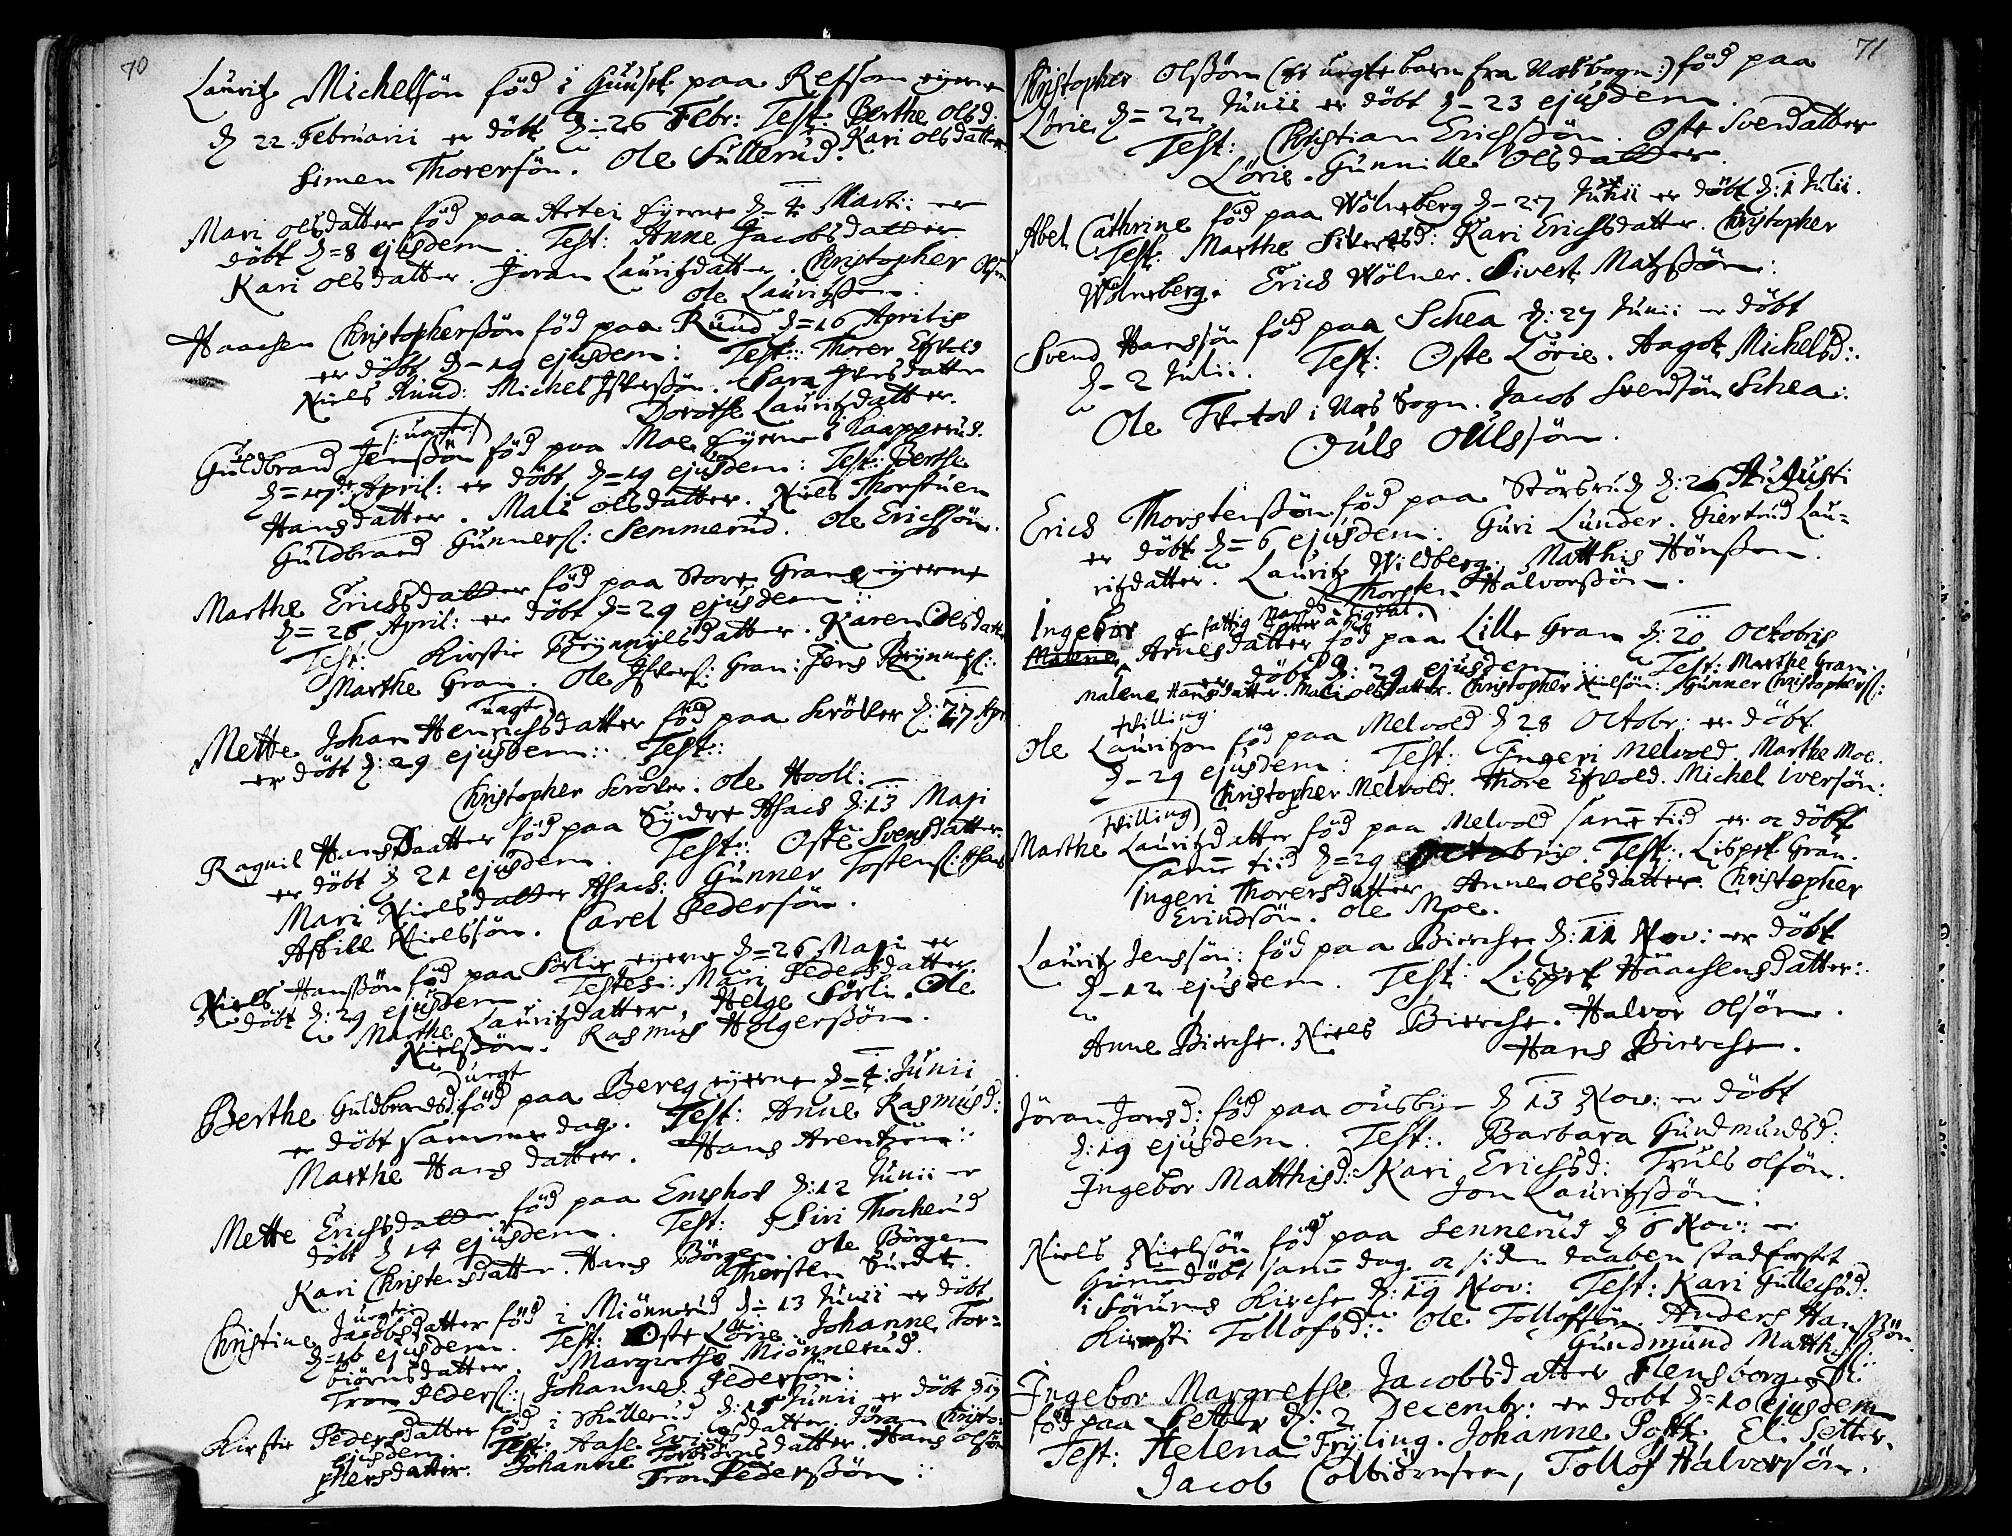 70
Lauritz Michelsön föd i Huuset paa Refsom eyerne
d 22 Februarii er döbt d: 26 Febr: Test: Berthe Olsd:
Simen Thorersön. Ole Sullerud. Kari Olsdatter
Mari Olsdatter föd paa Artei Eyerne d=4 Martii er
döbt d=8 ejusdem. Test: Anne Jacobsdatter
Kari Olsdatter. Joran Lauritzdatter. Christopher Olsen
Ole Lauritzsen:
Haachen Christopherssön föd paa Ruud d=16 Aprilis
er döbt d=19 ejusdem: Test: Thorer
Niels Ruud: Michel Iversön. Sara Iversdatter
Dorothe Lauritzdatter.
/:uægte:/
Guldbrand Jenssön föd paa Moe Eyernes Kaapperud.
d=17de April: er döbt d=19 ejusdem: Test: Berthe
Hansdatter. Mari Olsdatter. Niels Thorstuen
Guldbrand Gunners: Semmerud. Ole Erichsön.
Marthe Erichsdatter föd paa Store Gran eyerne
d=26 April: er döbt d=29 ejusdem:
Test: Kirstie Brynnyelsdatter. Karen Olsdatter
Marthe Gran. Ole Iffvers: Gran: Jens Brynnels:
uægte
Mette Johan Henrichsdatter föd paa Kröker d: 27 Apr
er döbt d: 29 ejusdem: Test::
Christopher Kröker. Ole Hooll:
Ragnil Hansdaatter föd paa Syndre Asach d: 13 Maji
er döbt d 21 ejusdem. Test: Oste Svensdatter.
Mari Nielsdatter Asach: Gunner Tostens: Asach
Askill Nielssön. Carel Pedersön.
Niels Hanssön föd paa Sörlie eyerne d=26 Maji er
döbt d: 29 ejusdem: Testes: Mari Pedersdatter.
Marthe Lauritzdatter, Helge Sörli. Ole
Nielssön. Rasmus Holgerssön.
uægt
Berthe Guldbrandsd: föd paa Bereg eyerne d=4 Junii
er döbt samme dag. Test: Anne Rasmusd:
Marthe Hans datter. Hans Arentzen:
Mette Erichsdatter föd paa Emshov d: 12 Junii er
döbt d 14 ejusdem. Test: Siri Thocherud
Kari Christensdatter. Hans Börgen. Ole Börgen
Thorsten Sundet.
uægte
Christine Jacobsdatter föd i Miönnerud d: 13 Junii er döbt
d=16 ejusdem. Test: Oste Lörie. Johanne Tor=
biörnsdatter. Margrethe Miönnerud.
Tron Peders:, Johannes Pedersön:
Kirstie Pedersdatter föd i Skullerud d: 15 Junii er döbt d 19
ejusdem. Test: Aase Erichsdatter. Jöran Christo:
phersdatter. Johanne Torbiörnsdatter. Hans Olssön
Tron Pederssön:

71
Christopher Olssön (et uegte barn fra Næs Sogn:) föd paa
Lörie d=22 Junii er döbt d-23 ejusdem.
Test: Christian Erichssön. Oste Svendatter
Lörie. Gunnille Olsdatter.
Abel Cathrine föd paa Wölneberg d-27 Junii er döbt d: 1 Julii.
Test: Marthe Sivertsd: Kari Erichsdatter. Christopher
Wölneberg. Erich Wölner. Sivert Matzssön:
Svend Hanssön föd paa Schea d: 27 Junii er döbt
d-2 Julii. Test: Oste Lörie. Aagot Michelsd:.
Ole i Næs Sogn. Jacob Svendsön Schea:
Ouls Oulssön.
Erich Thorstenssön föd paa Störsrud d: 2 Augusti
er döbt d=6 ejusdem. Guri Lunder. Giertrud Lau=
ritzdatter. Lauritz Wildberg. Matthis Hönssen.
Thorsten Halvorssön.
Ingebor en fattig Mands datter a Sigdal.
Malene Arnesdatter föd paa Lille Gran d: 20 Octobris
er döbt d: 29 ejusdem: Test: Marthe Gran.
Malene Hansdatter. Mari Olsdatter. Christopher Nielsön: Gunner Christophers:
tvilling
Ole Lauritzön föd paa Melvold d 28 Octobr: er döbt
d-29 ejusdem: Test: Ingeri Melvold. Marthe Moe.
Christopher Melvold. Thore Efvold. Michel Iversön:
Tvilling
Marthe Lauritzdatter föd paa Melvold samme tid er oc döbt
samme tiid d=29 Octobris. Test: Lisbet Gran.
Ingeri Thorersdatter. Anne Olsdatter. Christopher
Evindsön. Ole Moe.
Lauritz Jenssön: föd paa Bierche d: 11 Nov: er döbt
d-12 ejusdem. Test: Lisbet Haachensdatter:.
Anne Bierche. Niels Bierche. Halvor Olsön.
Hans Bierche.
Jöran Jonsd: föd paa Ousbye d 13 Nov: er döbt
d: 19 ejusdem. Test:. Barbara Gundmundsd:
Ingebor Matthisd: Kari Erichsd: Truls Olsön.
Jon Lauritzssön:
Niels Nielsön föd paa Sennerud d 6 Nov: er
hiemmedöbt samme dag oc siden daaben stadfestet
i Sörums Kirche d: 19 Nov: Test: Kari Gullichsd:
Kirsti Tollofsd: Ole Tollofsön. Anders Hanssön.
Gundmund Matthiss:
Ingebor Margrethe Jacobsdatter Flensborg er
föd paa Setter d: 2 Decembr: er döbt d=10 ejusdem
Test: Helena Fryling. Johanne Post. El. Setter.
Jacob Colbiörnsen, Tollof Halvorsön.